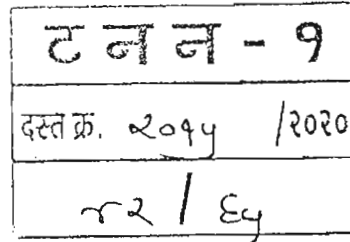 ट न न - १
दस्त क्र. २०१५ /२०२०
४२ / ६५